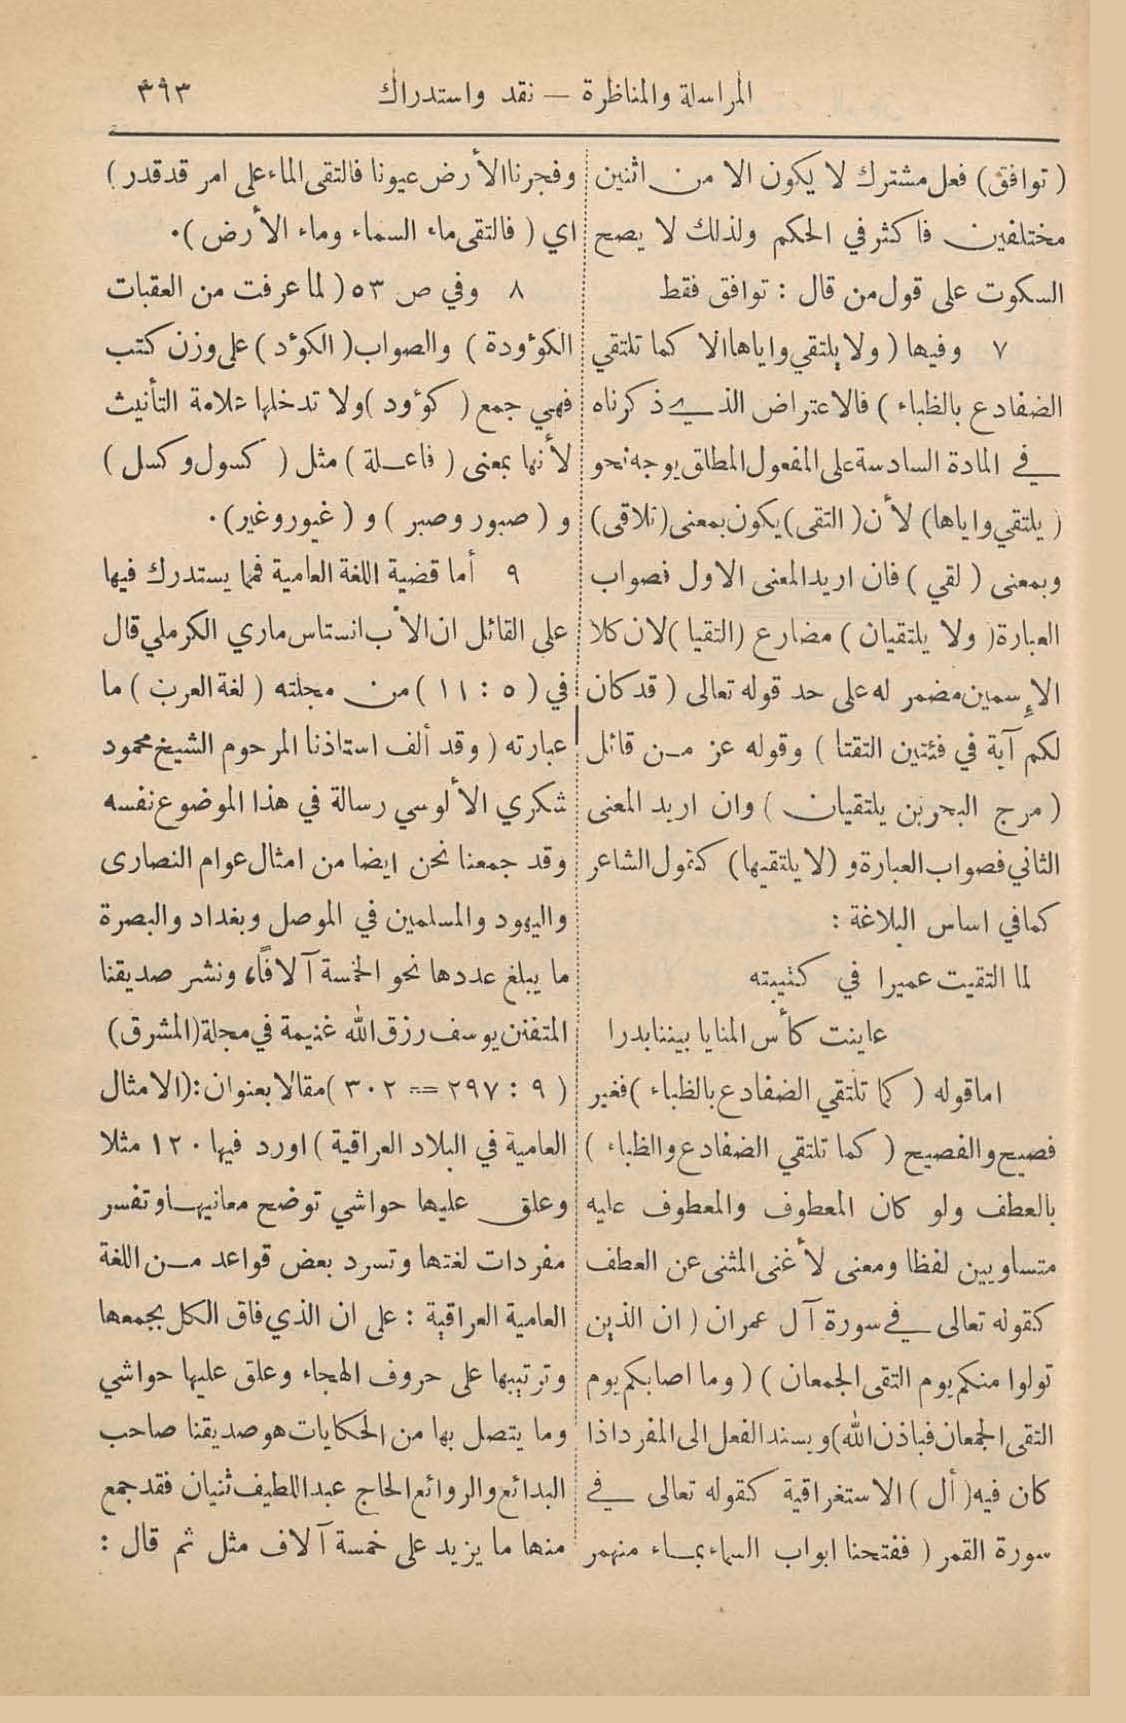 المراسلة والمناظرة — نقد واستدراك ٣٩٣
( توافق ) فعل مشترك لا يكون الا من اثنين
مختلفين فاكثر في الحكم ولذلك لا يصح
السكوت على قول من قال : توافق فقط
٧ وفيها ( ولا يلتقي واياها الا كما تلتقي
الضفادع بالظباء ) فالاعتراض الذي ذكرناه
في المادة السادسة على المفعول المطلق يوجه نحو
( يلتقي واياها ) لأن ( التقى ) يكون بمعنى ( تلاقى )
وبمعنى ( لقي ) فان اريد المعنى الاول فصواب
العبارة ( ولا يلتقيان ) مضارع ( التقيا ) لان كلا
الإسمين مضمر له على حد قوله تعالى ( قد كان
لكم آية في فئتين التقتا ) وقوله عز من قائل
( مرج البحرين يلتقيان ) وان اريد المعنى
الثاني فصواب العبارة و ( لا يلتقيها ) كقول الشاعر
كما في اساس البلاغة :
لما التقيت عميرا في كتيبته
عاينت كأس المنايا بيننا بدرا
اما قوله ( كما تلتقي الضفادع بالظباء ) فغير
فصيح والفصيح ( كما تلتقي الضفادع والظباء )
بالعطف ولو كان المعطوف والمعطوف عليه
متساويين لفظا ومعنى لأغنى المثنى عن العطف
كقوله تعالى في سورة آل عمران ( ان الذين
تولوا منكم يوم التقى الجمعان ) ( وما اصابكم يوم
التقى الجمعان فباذن الله ) ويسند الفعل الى المفرد اذا
كان فيه ( أل ) الاستغراقية كقوله تعالى في
سورة القمر ( ففتحنا ابواب السماء بماء منهمر
وفجرنا الأرض عيونا فالتقى الماء على امر قد قدر )
اي ( فالتقى ماء السماء وماء الأرض ) .
٨ وفي ص ٥٣ ( لما عرفت من العقبات
الكوؤودة ) والصواب ( الكوؤد ) على وزن كتب
فهي جمع ( كوؤود ) ولا تدخلها علامة التأنيث
لأنها بمعنى ( فاعلة ) مثل ( كسول وكسل )
و ( صبور وصبر ) و ( غيور وغير ) .
٩ أما قضية اللغة العامية فمما يستدرك فيها
على القائل ان الأب انستاس ماري الكرملي قال
في ( ٥ : ١١ ) من مجلته ( لغة العرب ) ما
عبارته ( وقد ألف استاذنا المرحوم الشيخ محمود
شكري الألوسي رسالة في هذا الموضوع نفسه
وقد جمعنا نحن ايضا من امثال عوام النصارى
واليهود والمسلمين في الموصل وبغداد والبصرة
ما يبلغ عددها نحو الخمسة آلافاً ، ونشر صديقنا
المتفنن يوسف رزق الله غنيمة في مجلة ( المشرق )
( ٩ : ٢٩٧ = ٣٠٢ ) مقالا بعنوان : ( الامثال
العامية في البلاد العراقية ) اورد فيها ١٢٠ مثلا
وعلق عليها حواشي توضح معانيها وتفسر
مفردات لغتها وتسرد بعض قواعد من اللغة
العامية العراقية : على ان الذي فاق الكل بجمعها
وترتيبها على حروف الهجاء وعلق عليها حواشي
وما يتصل بها من الحكايات هو صديقنا صاحب
البدائع والروائع الحاج عبد اللطيف ثنيان فقد جمع
منها ما يزيد على خمسة آلاف مثل ثم قال :